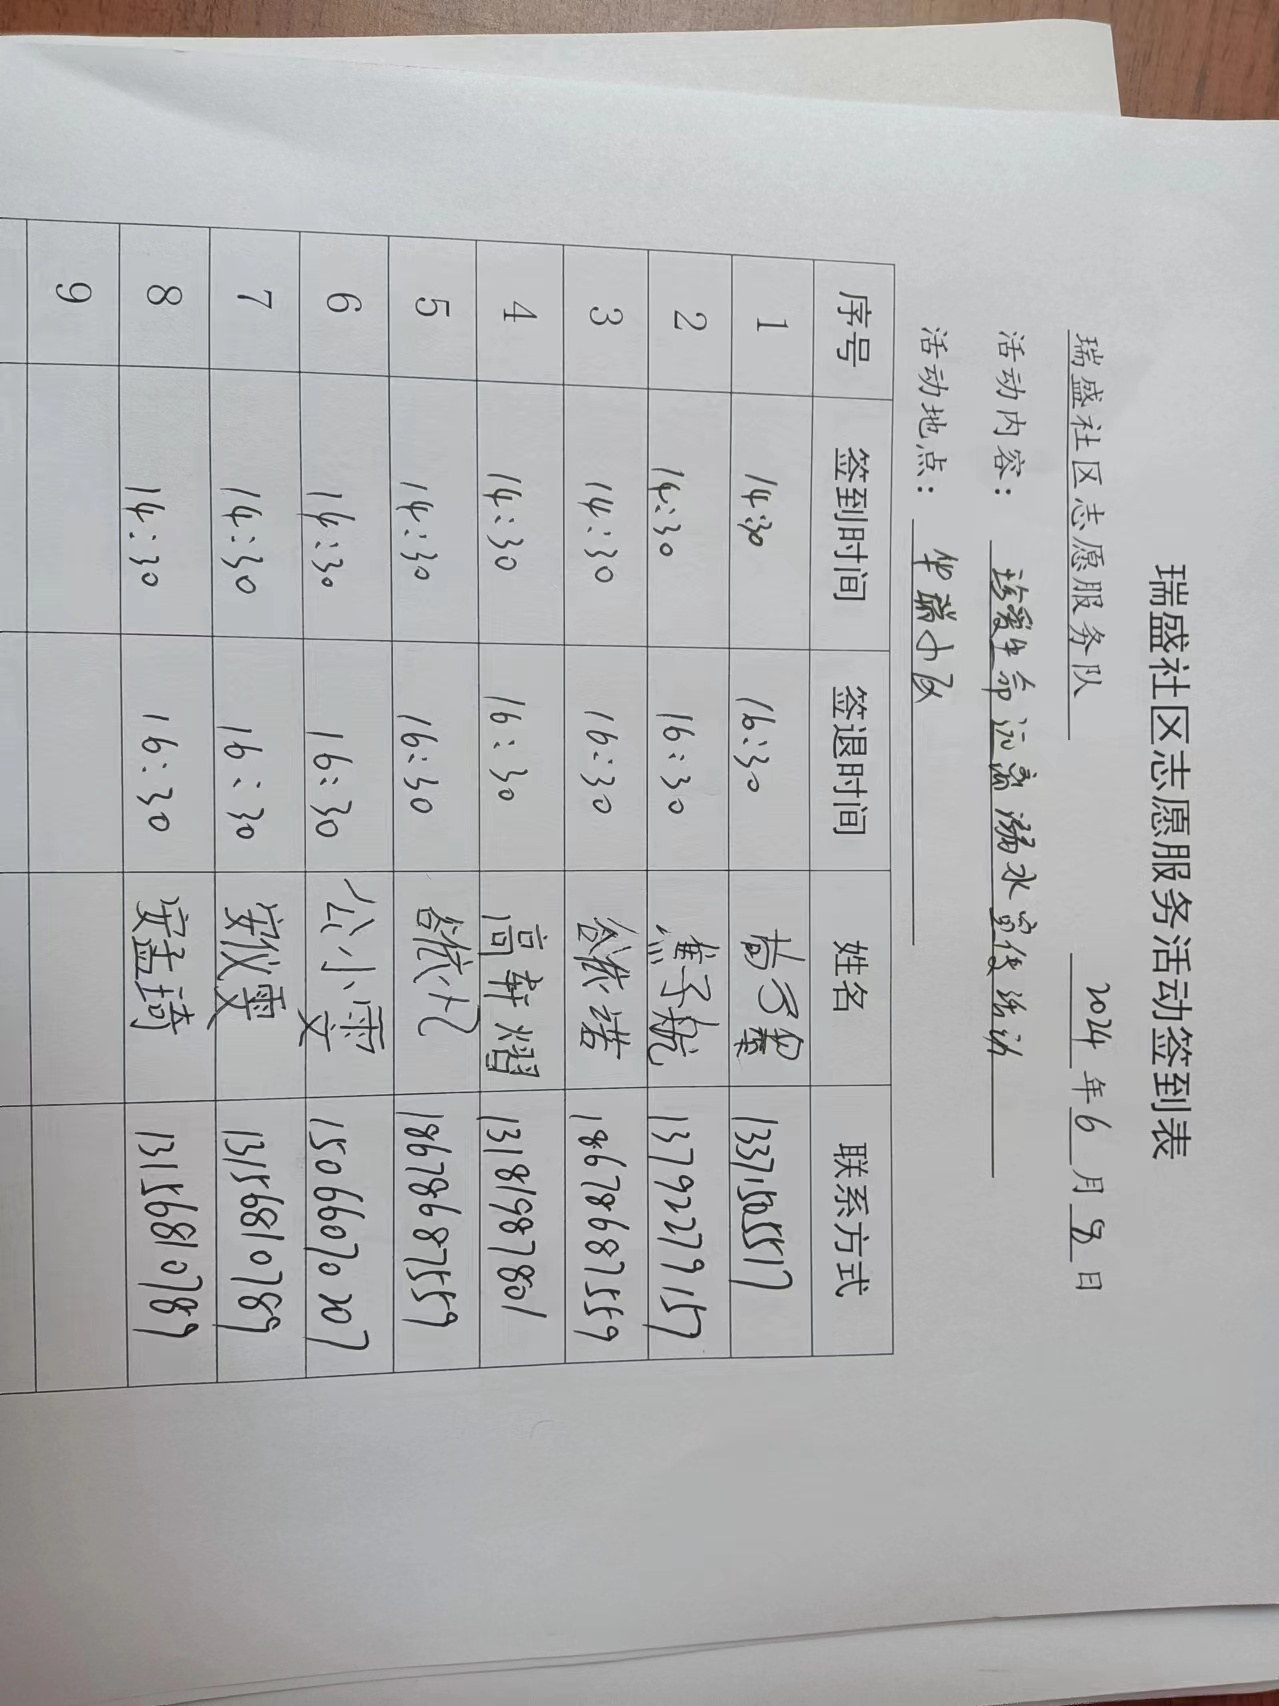 瑞盛社区志愿服务活动签到表
瑞盛社区志愿服务队 2024年6月8日
活动内容：珍爱生命远离溺水宣传活动
活动地点：华瑞小区
序号 签到时间 签退时间 姓名 联系方式
1 14:30 16:30 尚 13371505517
2 14:30 16:30 焦子航 13792279157
3 14:30 16:30 谷依诺 18678687559
4 14:30 16:30 高轩熠 13181987801
5 14:30 16:30 谷依凡 18678687559
6 14:30 16:30 公小雯 15066070207
7 14:30 16:30 安仪雯 13156810789
8 14:30 16:30 安孟琦 13156810789
9